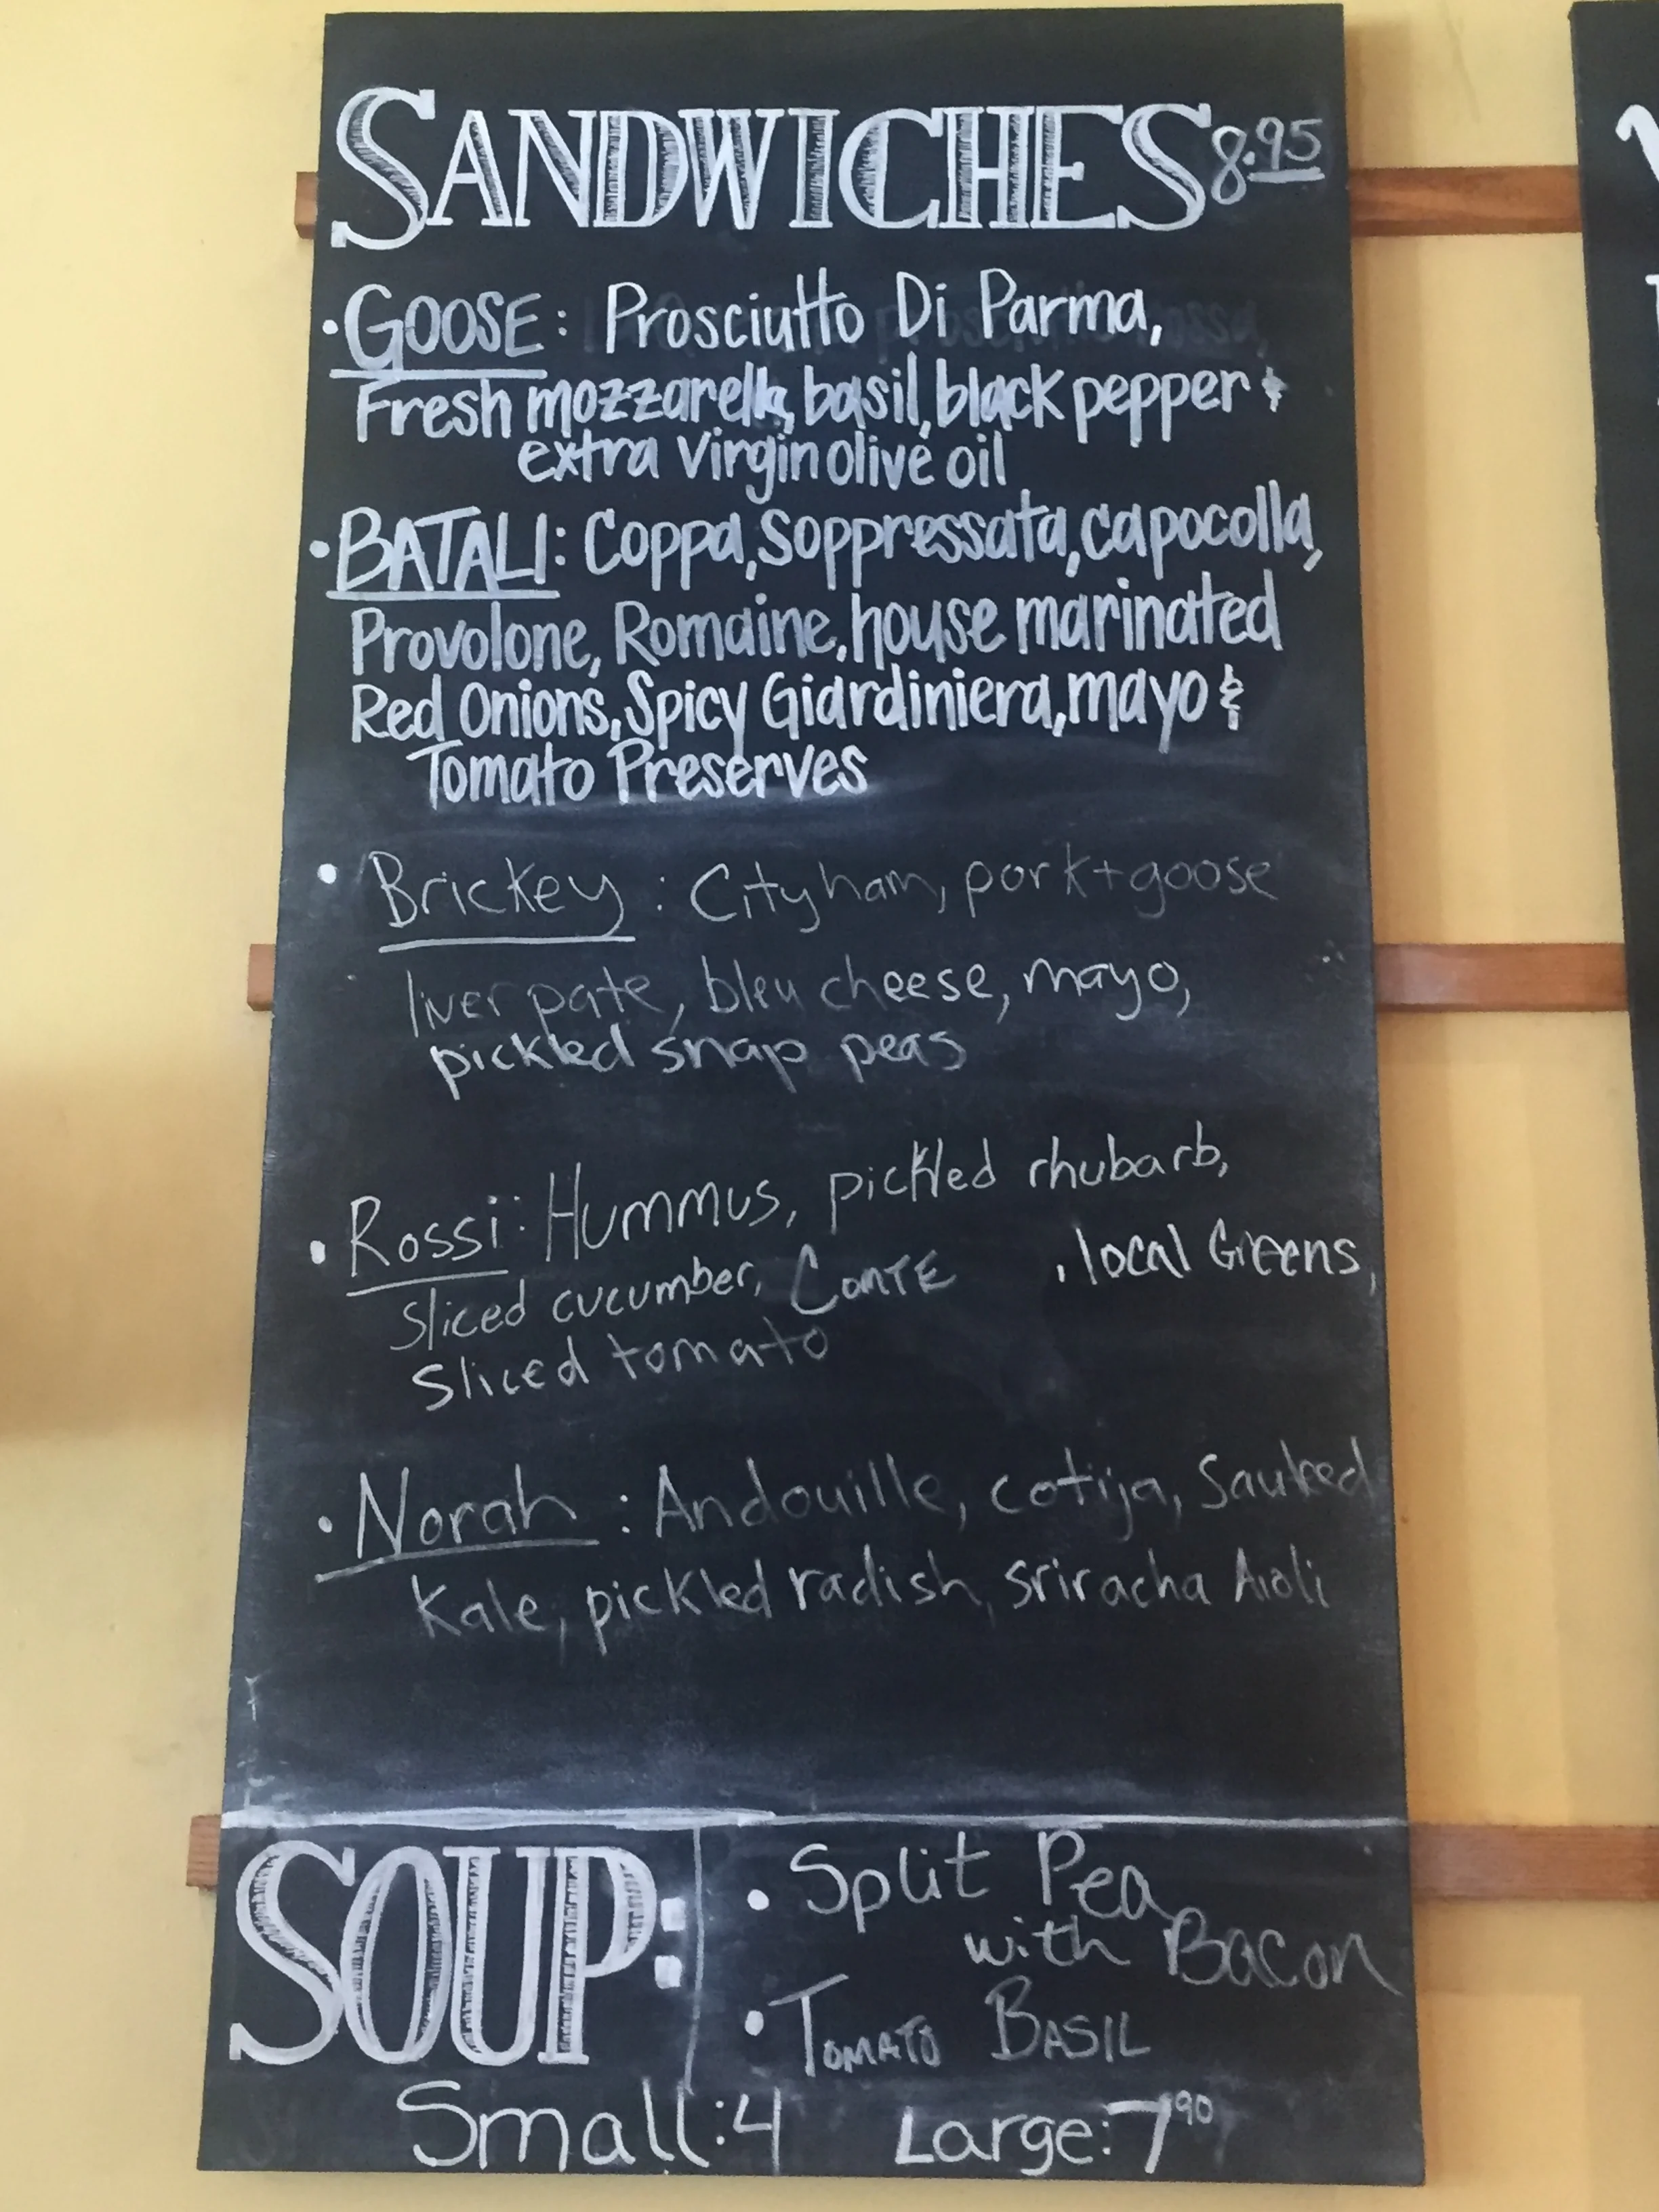 SANDWICHES 8.95
• GOOSE: Prosciutto Di Parma,
Fresh mozzarella, basil, black pepper &
extra virgin olive oil
• BATALI: Coppa, Soppressata, capocolla,
Provolone, Romaine, house marinated
Red Onions, Spicy Giardiniera, mayo &
Tomato Preserves
• Brickey: City ham, pork + goose
liver pate, bleu cheese, mayo,
pickled snap peas
• Rossi: Hummus, pickled rhubarb,
sliced cucumber, COMTE , local Greens,
Sliced tomato
• Norah: Andouille, cotija, Sauteed
Kale, pickled radish, sriracha Aioli
SOUP:
• Split Pea
with Bacon
• TOMATO BASIL
Small: 4 Large: 7 90